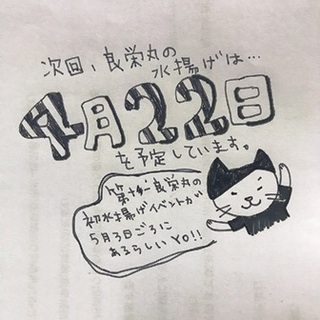 次回、良栄丸の
水揚げは…
4月22日
を予定しています。
良栄丸の
初水揚げイベントが
5月3日ごろに
あるらしいYO!!